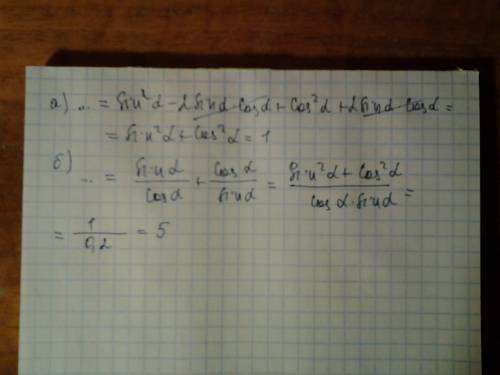 а) .. = sin²α - 2sinα·cosα + cos²α + 2sinα·cosα =
= sin²α + cos²α = 1
б) .. = sinα/cosα + cosα/sinα = (sin²α + cos²α)/(cosα·sinα) =
= 1/0,2 = 5